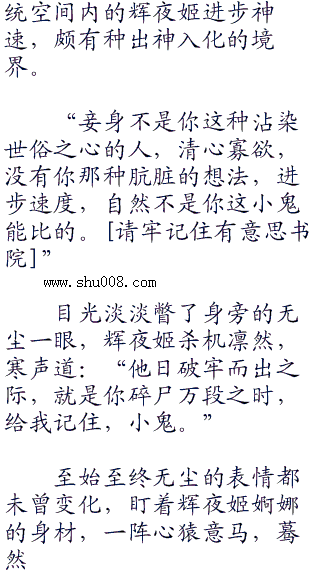 统空间内的辉夜姬进步神
速，颇有种出神入化的境
界。
“妾身不是你这种沾染
世俗之心的人，清心寡欲，
没有你那种肮脏的想法，进
步速度，自然不是你这小鬼
能比的。[请牢记住有意思书
院]”
www.shu008.com
目光淡淡瞥了身旁的无
尘一眼，辉夜姬杀机凛然，
寒声道：“他日破牢而出之
际，就是你碎尸万段之时，
给我记住，小鬼。”
至始至终无尘的表情都
未曾变化，盯着辉夜姬婀娜
的身材，一阵心猿意马，蓦
然